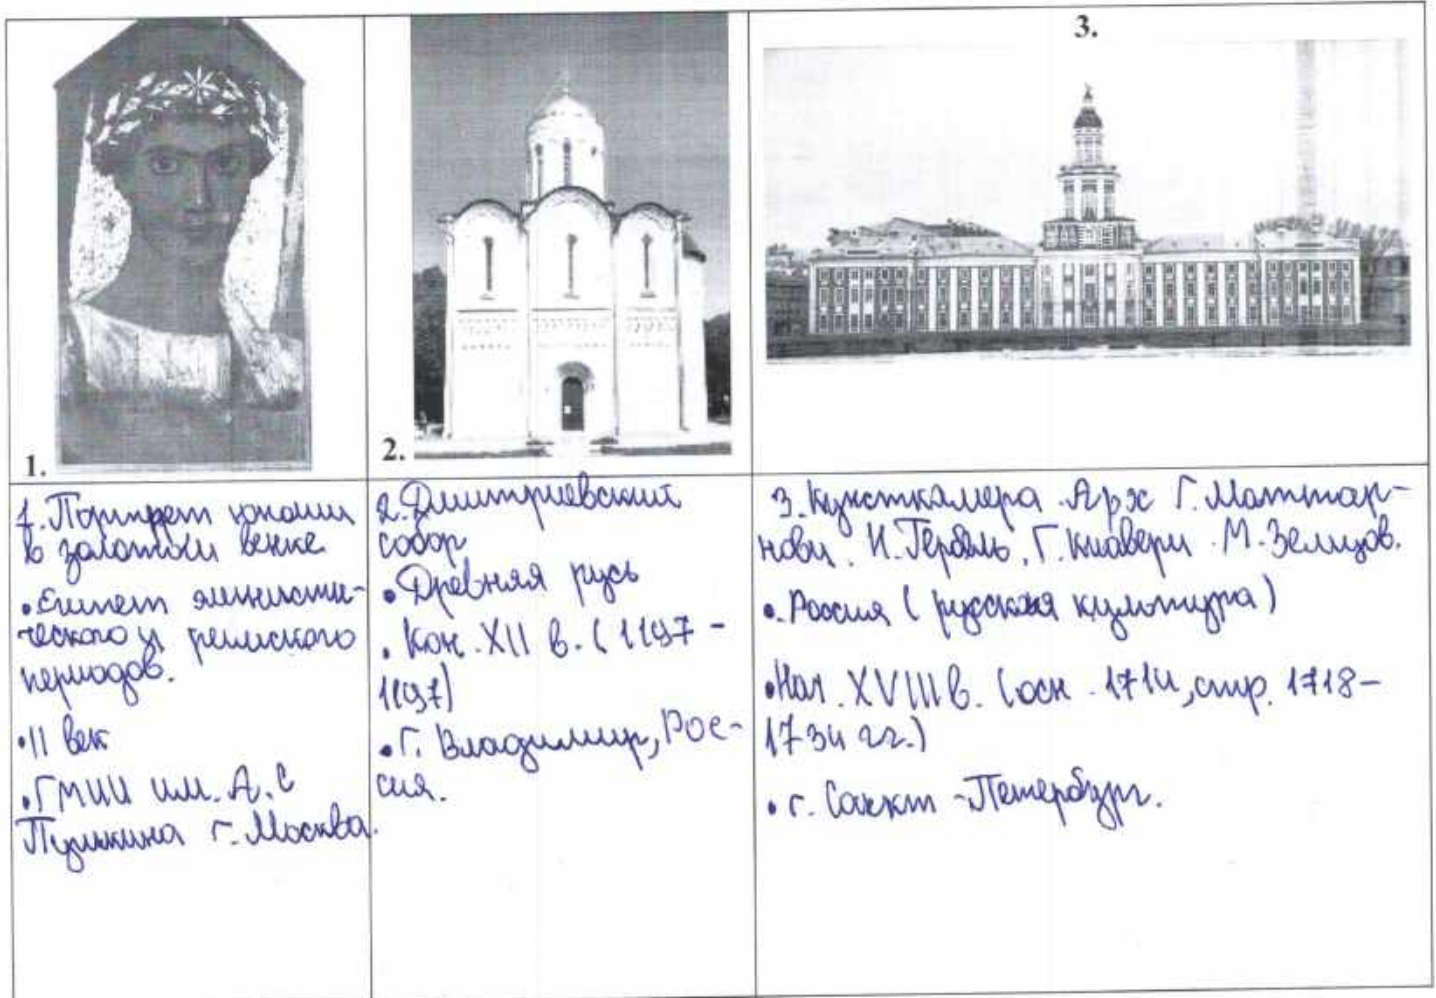 1.
2.
3.
1. Портрет юноши
в золотом венке
• Египет эллинисти-
ческого и римского
периодов.
• II век
• ГМИИ им. А.С
Пушкина г. Москва.
2. Дмитриевский
собор
• Древняя русь
• Кон. XII в. (1197 -
1197)
• Г. Владимир, Рос-
сия.
3. Кунсткамера Арх Г. Маттар-
нови. Н. Гербель, Г. Киавери М. Земцов.
• Россия (русская культура)
• Нач. XVIII в. (осн. 1714, стр. 1718-
1734 гг.)
• г. Санкт-Петербург.